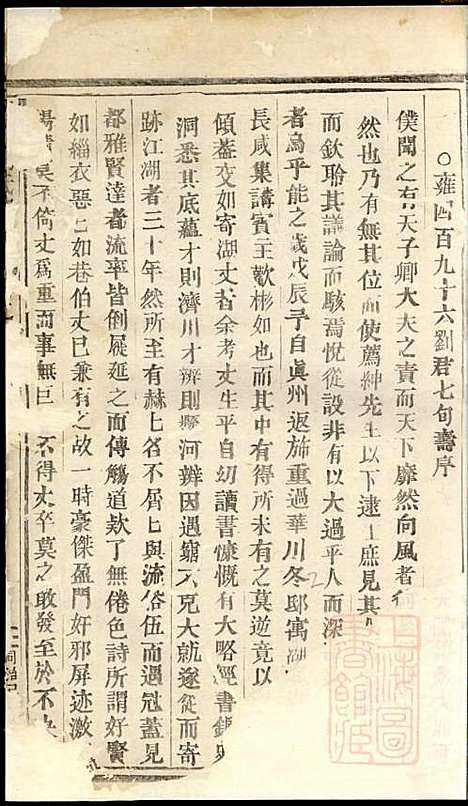 ○雍四百九十六劉君七旬壽序
僕聞之有天子卿大夫之責而天下靡然向風者
然也乃有無其位而使薦紳先生以下逮士庶見其
而欽聆其議論而駭焉悅從設非有以大過乎人而深
者烏乎能之歲戊辰予自眞州返斾重過華川冬邸寓湖
長咸集講賓主歡彬如也而其中有得所未有之莫逆竟以
傾葢交如寄湖丈者余考丈生平自幼讀書慷慨有大略經書
洞悉其底蘊才則濟川才辨則懸河辨因遇蹇不克大就遂從而寄
跡江湖者三十年然所至有赫上名不屑上與流俗伍而遇冠蓋見
都雅賢達者流率皆倒屣延之而傳觴道欵了無倦色詩所謂好賢
如緇衣惡 如巷伯丈巳兼有之故一時豪傑盈門奸邪屏迹激
揚 莫不倚丈爲重而事無巨 不得丈卒莫之敢發至於不